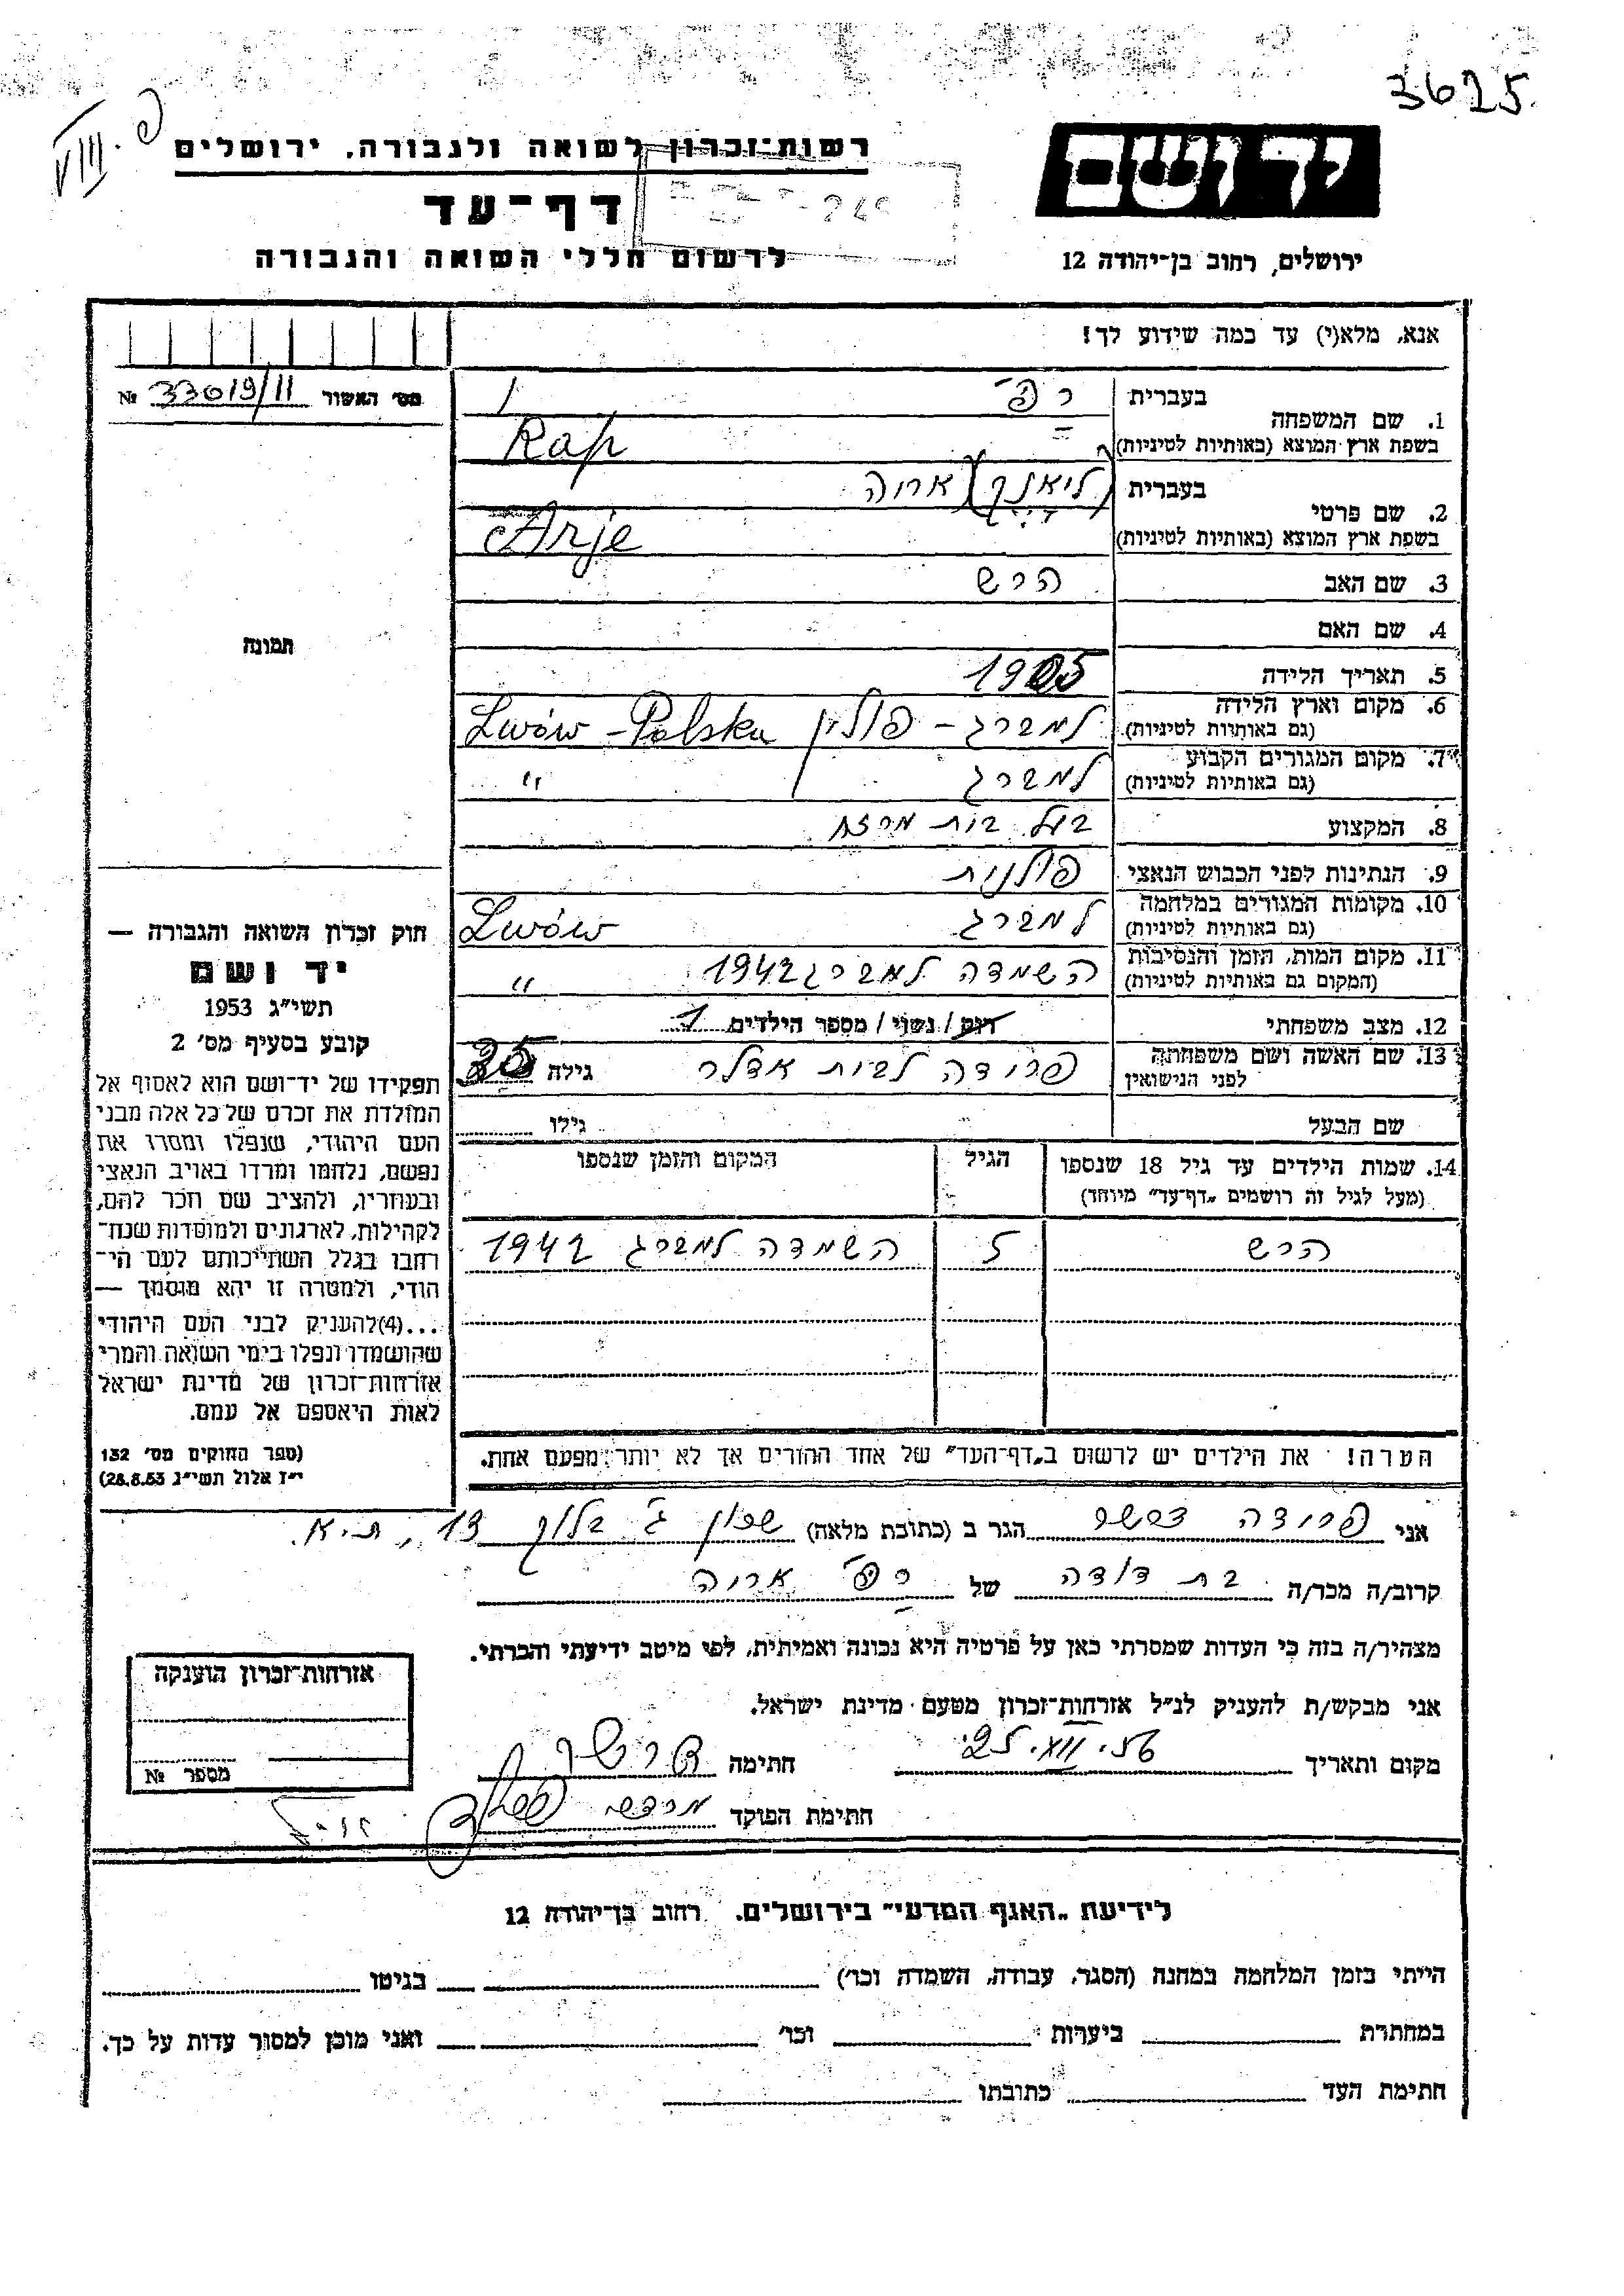 3625
VIII. פ
יד ושם
ירושלים, רחוב בן־יהודה 12
רשות־זכרון לשואה ולגבורה, ירושלים
דף־עד
לרשום חללי השואה והגבורה
אנא, מלא(י) עד כמה שידוע לך!
מס׳ האשור 33019/11 №
1. שם המשפחה בעברית רפ
בשפת ארץ המוצא (באותיות לטיניות) Rap
2. שם פרטי בעברית אריה
בשפת ארץ המוצא (באותיות לטיניות) Arje
3. שם האב הרש
4. שם האם
5. תאריך הלידה 1905
6. מקום וארץ הלידה (גם באותיות לטיניות) למברג – פולין Lwów – Polska
7. מקום המגורים הקבוע (גם באותיות לטיניות) למברג "
8. המקצוע בעל בית מרזח
9. הנתינות לפני הכבוש הנאצי פולנית
10. מקומות המגורים במלחמה (גם באותיות לטיניות) למברג Lwów
11. מקום המות, הזמן והנסיבות (המקום גם באותיות לטיניות) השמדה למברג 1942 "
12. מצב משפחתי רוק / נשוי / מספר הילדים 1
13. שם האשה ושם משפחתה לפני הנישואין פרידה לבית אדלר גילה 35
שם הבעל גילו
14. שמות הילדים עד גיל 18 שנספו (מעל לגיל זה רושמים „דף־עד" מיוחד) הגיל המקום והזמן שנספו
הרש 5 השמדה למברג 1942
הערה! את הילדים יש לרשום ב„דף־העד" של אחד ההורים אך לא יותר מפעם אחת.
תמונה
חוק זכרון השואה והגבורה —
יד ושם
תשי״ג 1953
קובע בסעיף מס׳ 2
תפקידו של יד־ושם הוא לאסוף אל
המולדת את זכרם של כל אלה מבני
העם היהודי, שנפלו ומסרו את
נפשם, נלחמו ומרדו באויב הנאצי
ובעוזריו, ולהציב שם וזכר להם,
לקהילות, לארגונים ולמוסדות שנח־
רחבו בגלל השתייכותם לעם הי־
הודי, ולמטרה זו יהא מוסמך —
...(4)להעניק לבני העם היהודי
שהושמדו ונפלו בימי השואה והמרי
אזרחות־זכרון של מדינת ישראל
לאות היאספם אל עמם.
(ספר החוקים מס׳ 132
י״ז אלול תשי״ג 28.8.53)
אני פרידה הגר ב (כתובת מלאה) שכון ג׳ בלוק 13, ת.א.
קרוב/ה מכר/ה בת דודה של רפ אריה
מצהיר/ה בזה כי העדות שמסרתי כאן על פרטיה היא נכונה ואמיתית, לפי מיטב ידיעתי והכרתי.
אני מבקש/ת להעניק לנ״ל אזרחות־זכרון מטעם מדינת ישראל.
מקום ותאריך חתימה
חתימת הפוקד
אזרחות־זכרון הוענקה
מספר №
לידיעת „האגף המדעי" בירושלים, רחוב בן־יהודה 12
הייתי בזמן המלחמה במחנה (הסגר, עבודה, השמדה וכו׳) בגיטו
במחתרת ביערות וכו׳ ואני מוכן למסור עדות על כך.
חתימת העד כתובתו